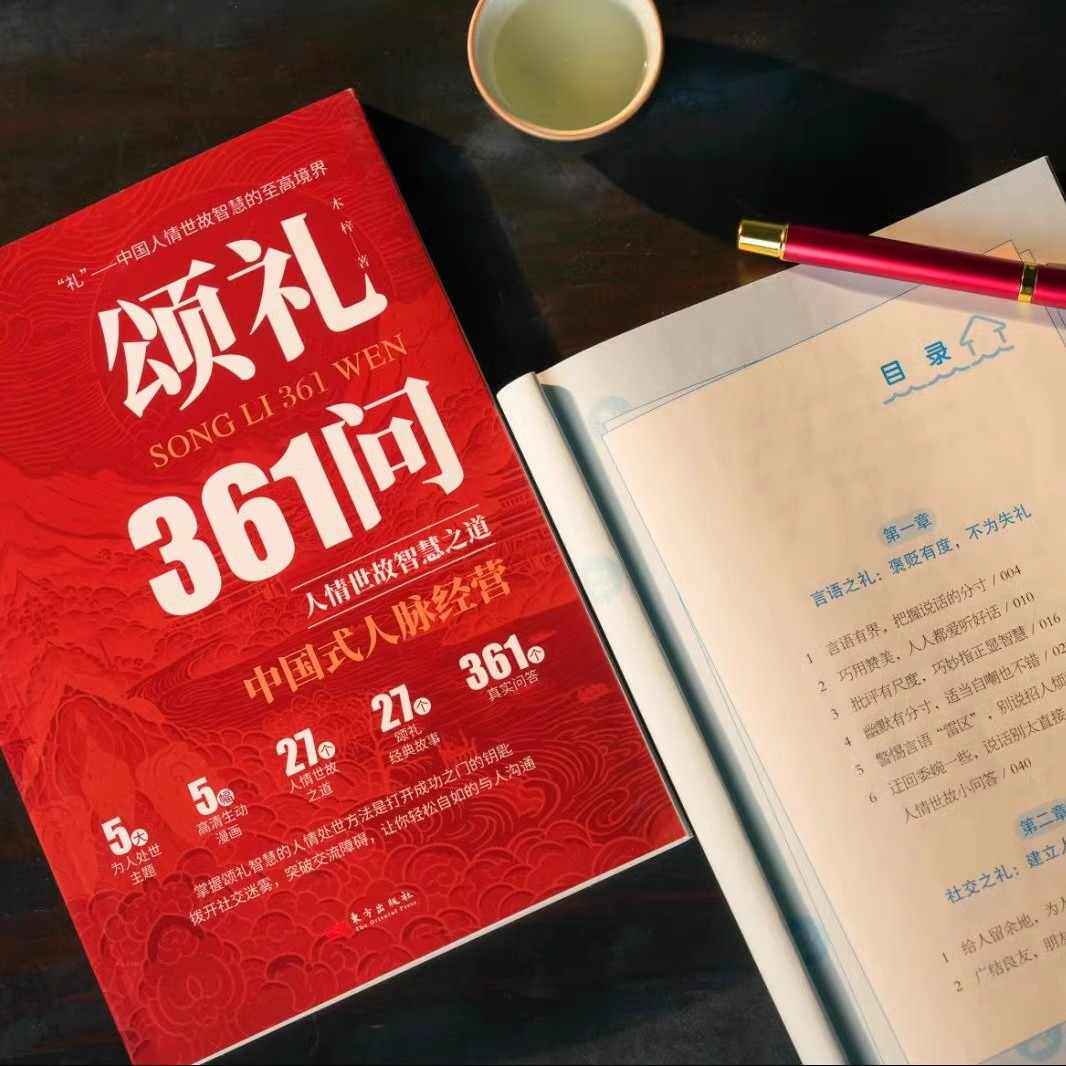 “礼”—中国人情世故智慧的至高境界
木梓—著
颂礼
SONG LI 361 WEN
361问
人情世故智慧之道
中国式人脉经营
5大
为人处世
主题
5幅
高清生动
漫画
27个
人情世故
之道
27个
颂礼
经典故事
361个
真实问答
掌握颂礼智慧的人情处世方法是打开成功之门的钥匙
拨开社交迷雾，突破交流障碍，让你轻松自如的与人沟通
东方出版社
The Oriental Press
目录
第一章
言语之礼：褒贬有度，不为失礼
1 言语有界，把握说话的分寸 / 004
2 巧用赞美，人人都爱听好话 / 010
3 批评有尺度，巧妙指正显智慧 / 016
4 幽默有分寸，适当自嘲也不错 / 02
5 警惕言语“雷区”，别说招人烦
6 迂回委婉一些，说话别太直接
人情世故小问答 / 040
第二章
社交之礼：建立人
1 给人留余地，为人
2 广结良友，朋友